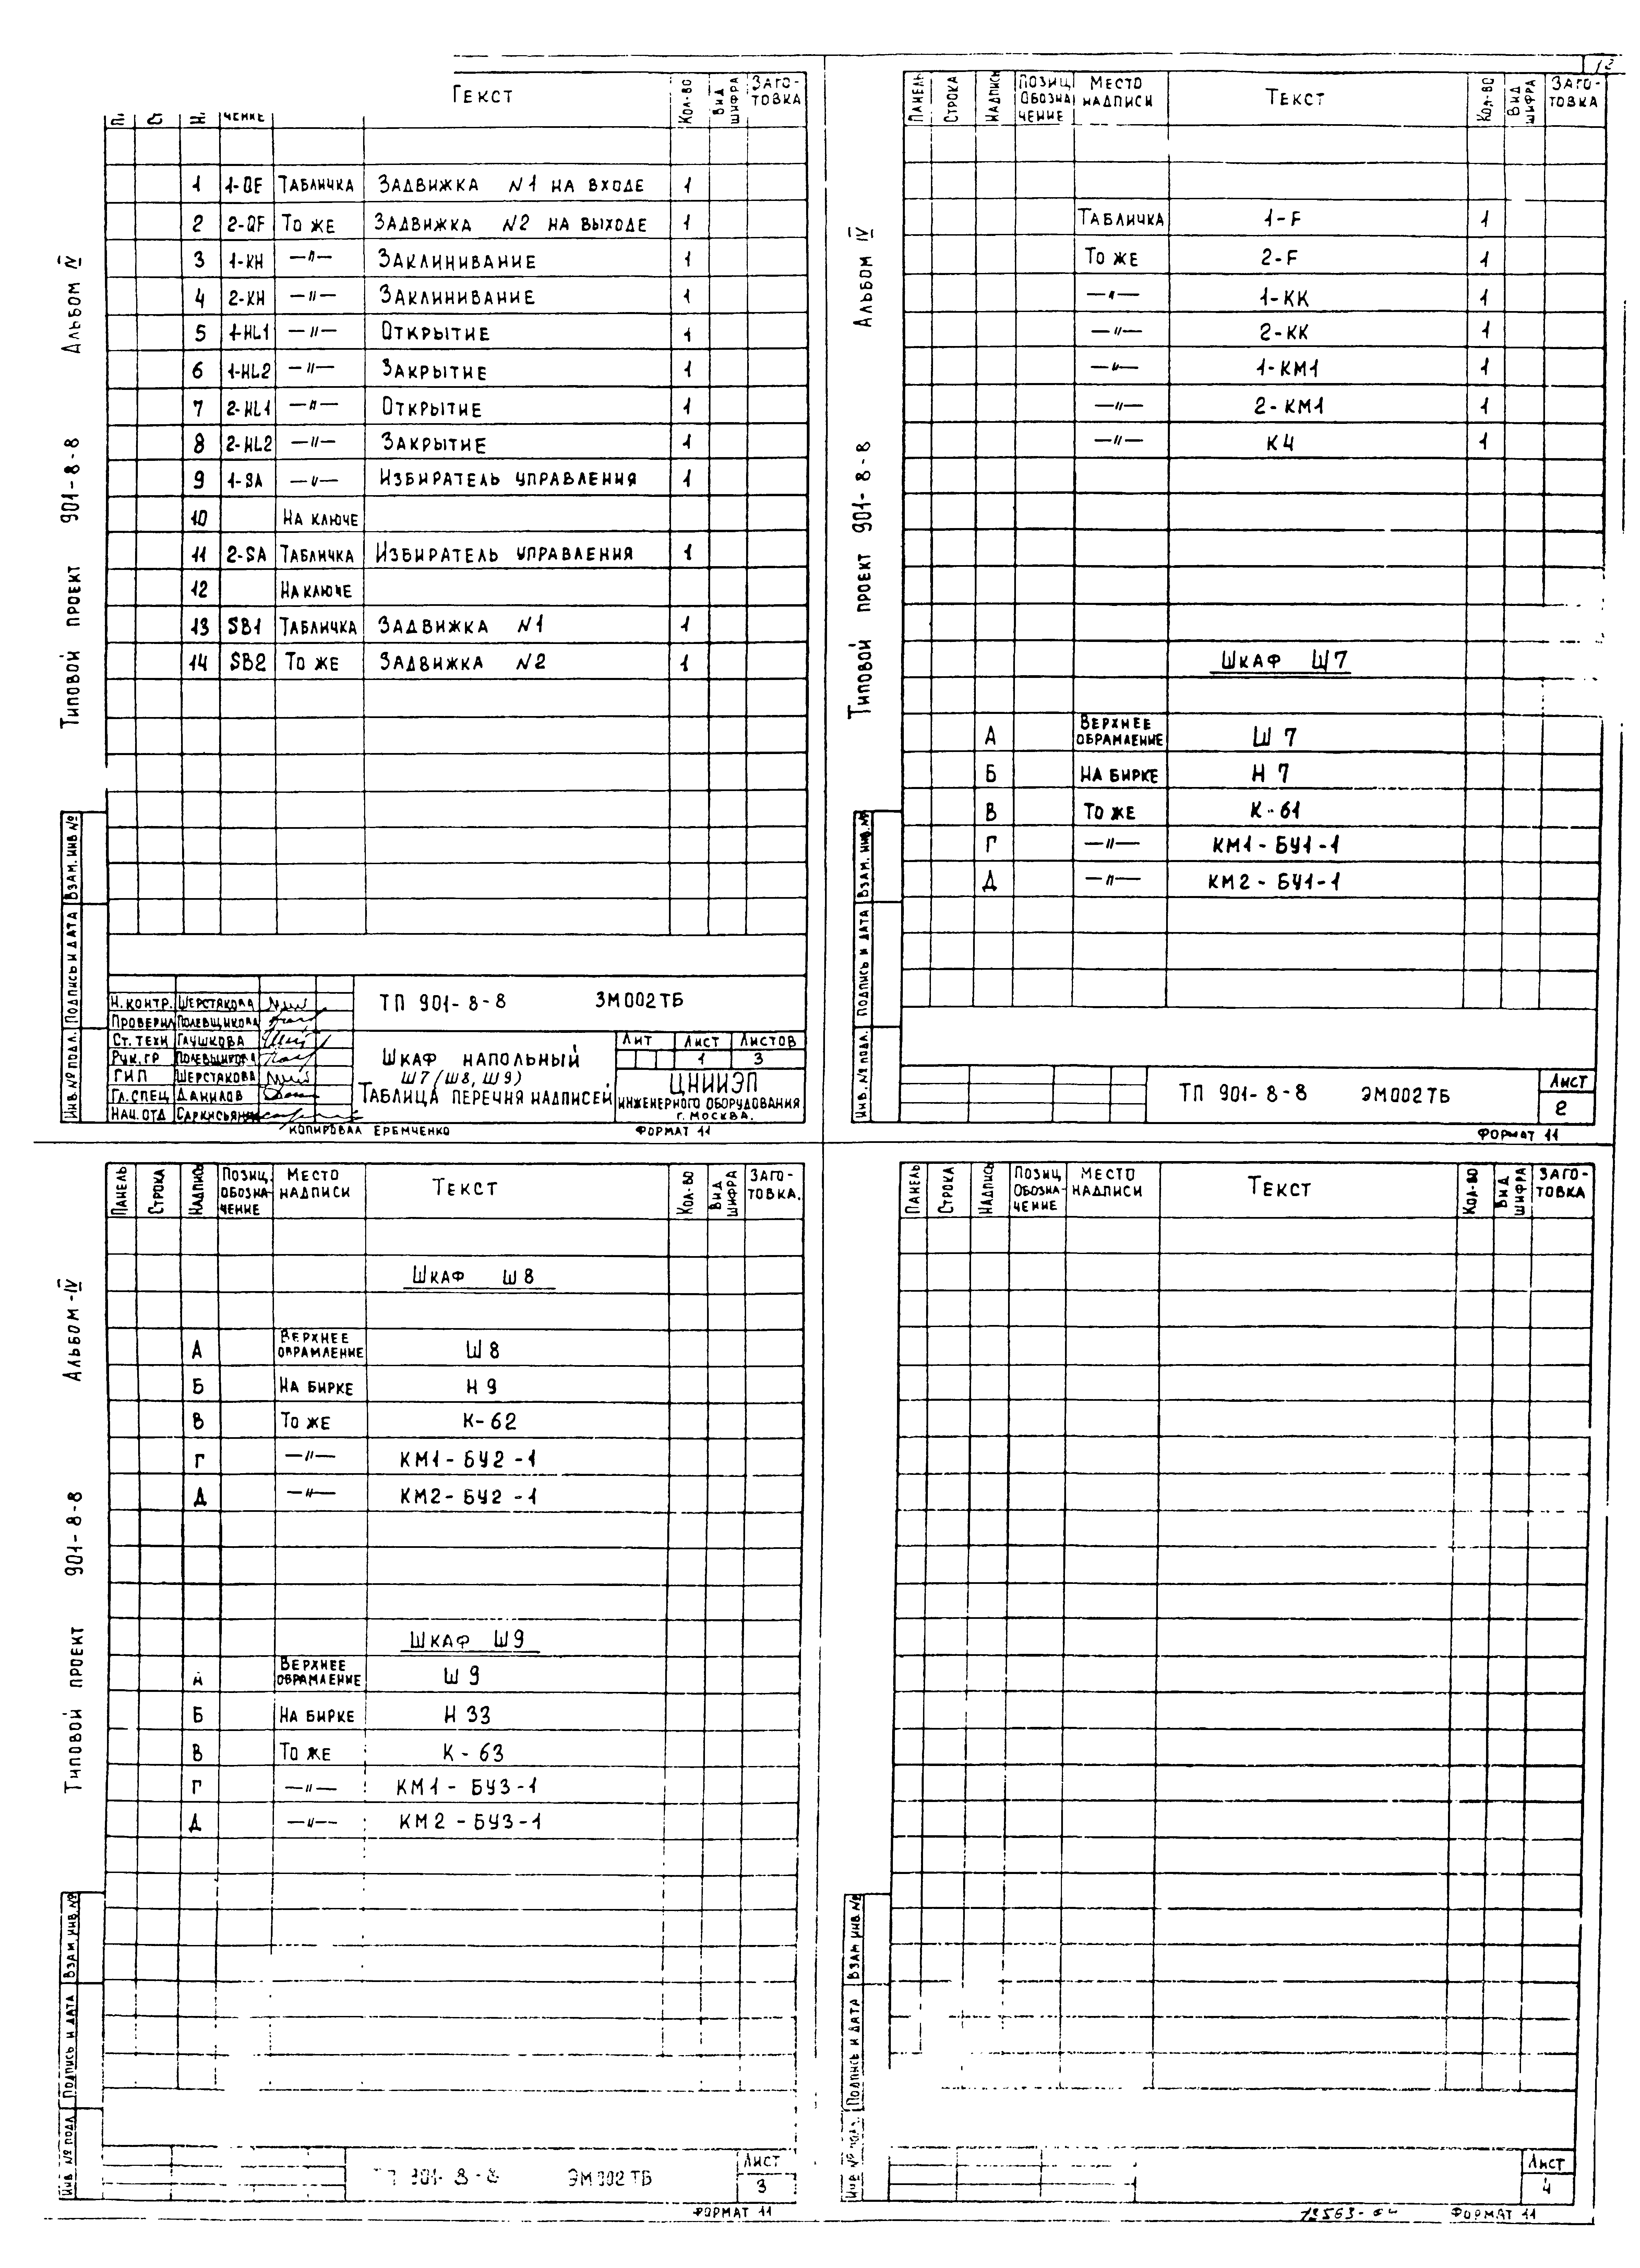 12
ТЕКСТ КОЛ-ВО ВИД ШИФРА ЗАГОТОВКА
ЧЕНИЕ
1 1-QF ТАБЛИЧКА ЗАДВИЖКА N1 НА ВХОДЕ 1
2 2-QF ТО ЖЕ ЗАДВИЖКА N2 НА ВЫХОДЕ 1
3 1-КН —"— ЗАКЛИНИВАНИЕ 1
4 2-КН —"— ЗАКЛИНИВАНИЕ 1
5 1-HL1 —"— ОТКРЫТИЕ 1
6 1-HL2 —"— ЗАКРЫТИЕ 1
7 2-HL1 —"— ОТКРЫТИЕ 1
8 2-HL2 —"— ЗАКРЫТИЕ 1
9 1-SA —"— ИЗБИРАТЕЛЬ УПРАВЛЕНИЯ 1
10 НА КЛЮЧЕ
11 2-SA ТАБЛИЧКА ИЗБИРАТЕЛЬ УПРАВЛЕНИЯ 1
12 НА КЛЮЧЕ
13 SB1 ТАБЛИЧКА ЗАДВИЖКА N1 1
14 SB2 ТО ЖЕ ЗАДВИЖКА N2 1
ТИПОВОЙ ПРОЕКТ 901-8-8 АЛЬБОМ IV
ИНВ. № ПОДЛ. ПОДПИСЬ И ДАТА ВЗАМ. ИНВ №
Н. КОНТР. ШЕРСТЯКОВА
ПРОВЕРИЛ ПОЛЕВЩИКОВА
СТ. ТЕХН ГЛУШКОВА
РУК. ГР ПОЛЕВЩИКОВА
ГИП ШЕРСТЯКОВА
ГЛ. СПЕЦ ДАНИЛОВ
НАЧ. ОТД САРКИСЬЯН
ТП 901-8-8 ЭМ002ТБ
ШКАФ НАПОЛЬНЫЙ
Ш7 (Ш8, Ш9)
ТАБЛИЦА ПЕРЕЧНЯ НАДПИСЕЙ
ЛИТ ЛИСТ ЛИСТОВ
1 3
ЦНИИЭП
ИНЖЕНЕРНОГО ОБОРУДОВАНИЯ
Г. МОСКВА.
КОПИРОВАЛ ЕРЕМЧЕНКО ФОРМАТ 11
ПАНЕЛЬ СТРОКА НАДПИСЬ ПОЗИЦ ОБОЗНАЧЕНИЕ МЕСТО НАДПИСИ ТЕКСТ КОЛ-ВО ВИД ШИФРА ЗАГОТОВКА
ТАБЛИЧКА 1-F 1
ТО ЖЕ 2-F 1
—"— 1-КК 1
—"— 2-КК 1
—"— 1-КМ1 1
—"— 2-КМ1 1
—"— К4 1
ШКАФ Ш7
А ВЕРХНЕЕ ОБРАМЛЕНИЕ Ш 7
Б НА БИРКЕ Н 7
В ТО ЖЕ К-61
Г —"— КМ1-БУ1-1
Д —"— КМ2-БУ1-1
ТИПОВОЙ ПРОЕКТ 901-8-8 АЛЬБОМ IV
ИНВ. № ПОДЛ. ПОДПИСЬ И ДАТА ВЗАМ. ИНВ. №
ТП 901-8-8 ЭМ002ТБ
ЛИСТ
2
ФОРМАТ 11
ПАНЕЛЬ СТРОКА НАДПИСЬ ПОЗИЦ. ОБОЗНАЧЕНИЕ МЕСТО НАДПИСИ ТЕКСТ КОЛ-ВО ВИД ШИФРА ЗАГОТОВКА.
ШКАФ Ш8
А ВЕРХНЕЕ ОБРАМЛЕНИЕ Ш 8
Б НА БИРКЕ Н 9
В ТО ЖЕ К-62
Г —"— КМ1-БУ2-1
Д —"— КМ2-БУ2-1
ШКАФ Ш9
А ВЕРХНЕЕ ОБРАМЛЕНИЕ Ш 9
Б НА БИРКЕ Н 33
В ТО ЖЕ К-63
Г —"— КМ1-БУ3-1
Д —"— КМ2-БУ3-1
ТИПОВОЙ ПРОЕКТ 901-8-8 АЛЬБОМ-IV
ИНВ № ПОДЛ ПОДПИСЬ И ДАТА ВЗАМ ИНВ №
ТП 901-8-8 ЭМ002ТБ
ЛИСТ
3
ФОРМАТ 11
ПАНЕЛЬ СТРОКА НАДПИСЬ ПОЗИЦ ОБОЗНАЧЕНИЕ МЕСТО НАДПИСИ ТЕКСТ КОЛ-ВО ВИД ШИФРА ЗАГОТОВКА
ИНВ № ПОДЛ. ПОДПИСЬ И ДАТА ВЗАМ ИНВ №
ЛИСТ
4
ФОРМАТ 11